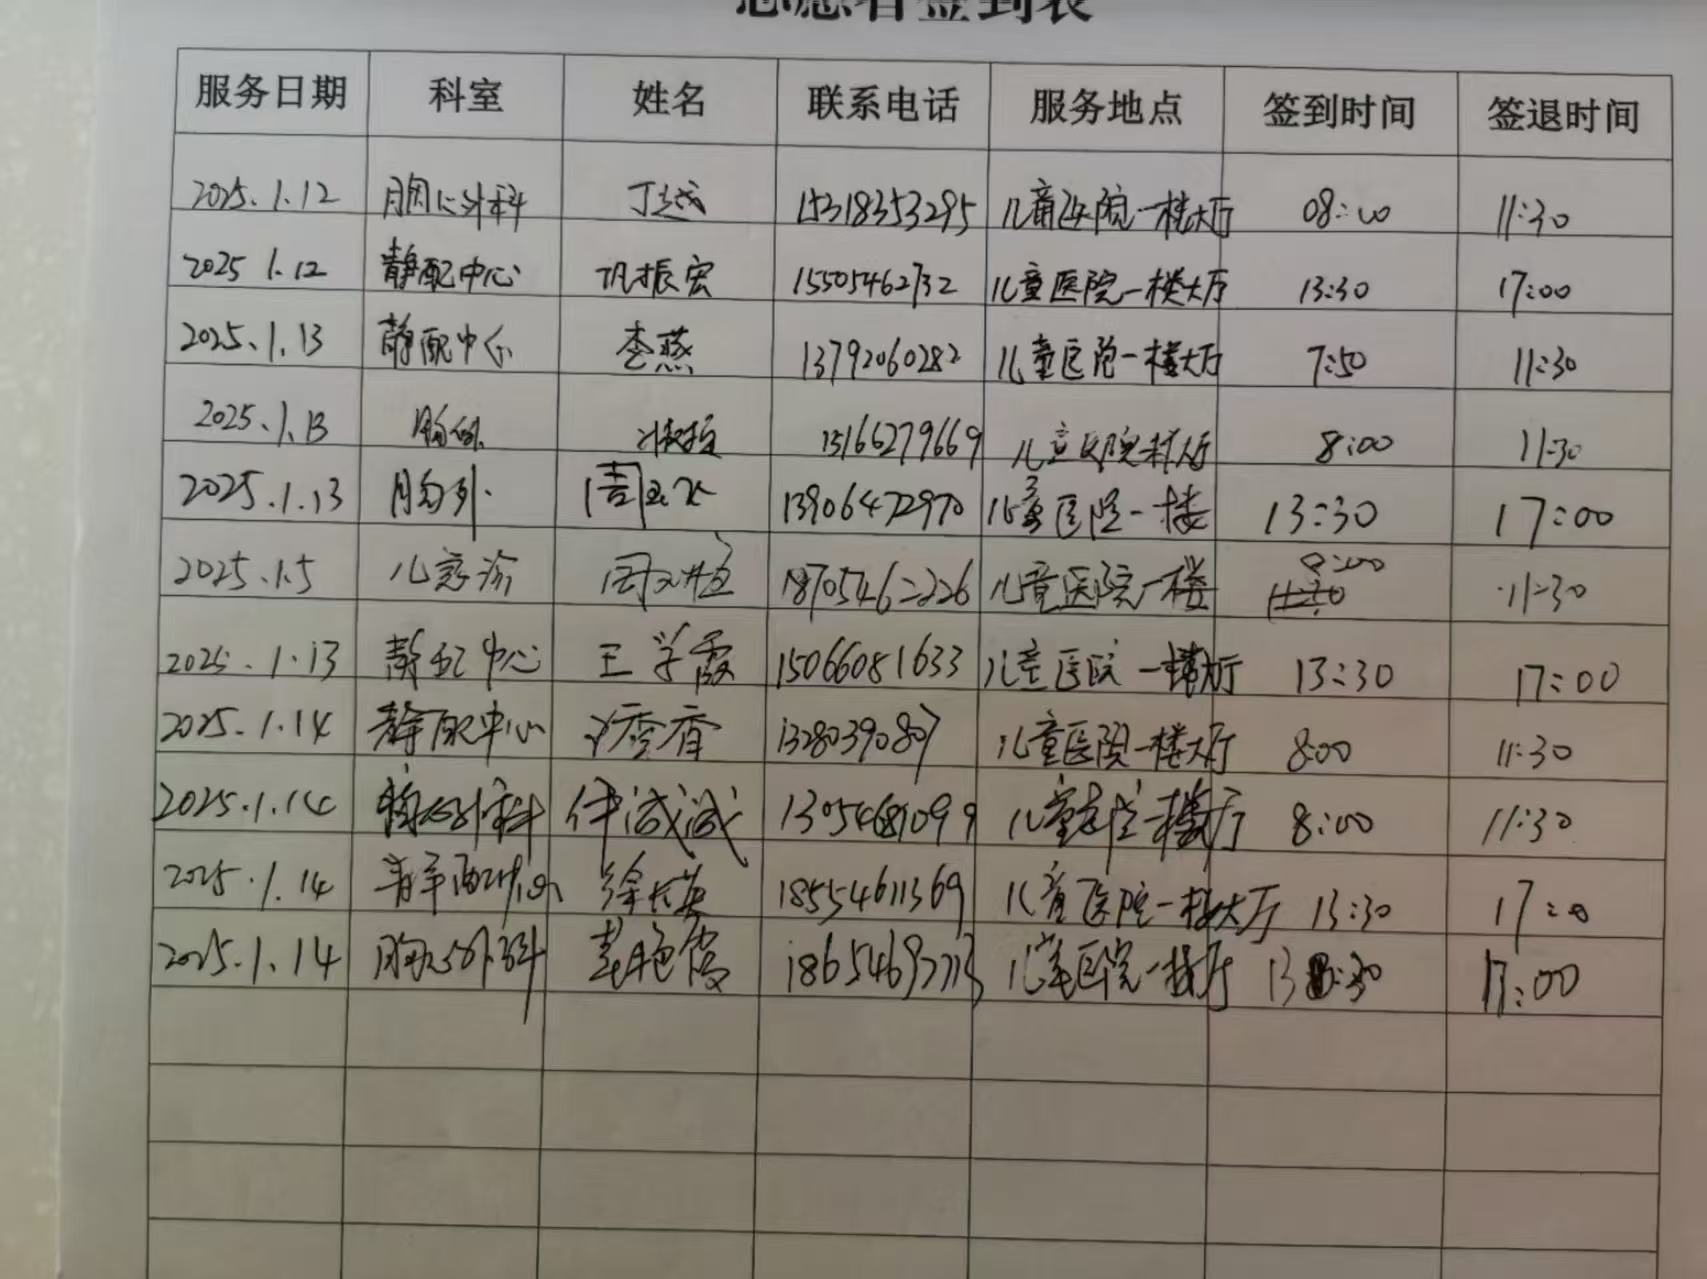 志愿者签到表
服务日期 科室 姓名 联系电话 服务地点 签到时间 签退时间
2025.1.12 胸心外科 丁越 15318353295 儿童医院一楼大厅 08:00 11:30
2025 1.12 静配中心 巩振宏 15505462732 儿童医院一楼大厅 13:30 17:00
2025.1.13 静配中心 李燕 13792060282 儿童医院一楼大厅 7:50 11:30
2025.1.13 胸外 15166279669 儿童医院一楼大厅 8:00 11:30
2025.1.13 胸外. 13906472970 儿童医院一楼 13:30 17:00
2025.1.5 儿急诊 18705462226 儿童医院一楼 8:00 11:30
2025.1.13 静配中心 王学霞 15066081633 儿童医院一楼大厅 13:30 17:00
2025.1.14 静配中心 秀香 13280390807 儿童医院一楼大厅 8:00 11:30
2025.1.14 胸心外科 诚诚 13054681099 儿童医院一楼大厅 8:00 11:30
2025.1.14 静配中心 徐长英 18554611369 儿童医院一楼大厅 13:30 17:00
2025.1.14 胸心外科 艳霞 儿童医院一楼大厅 13:30 17:00